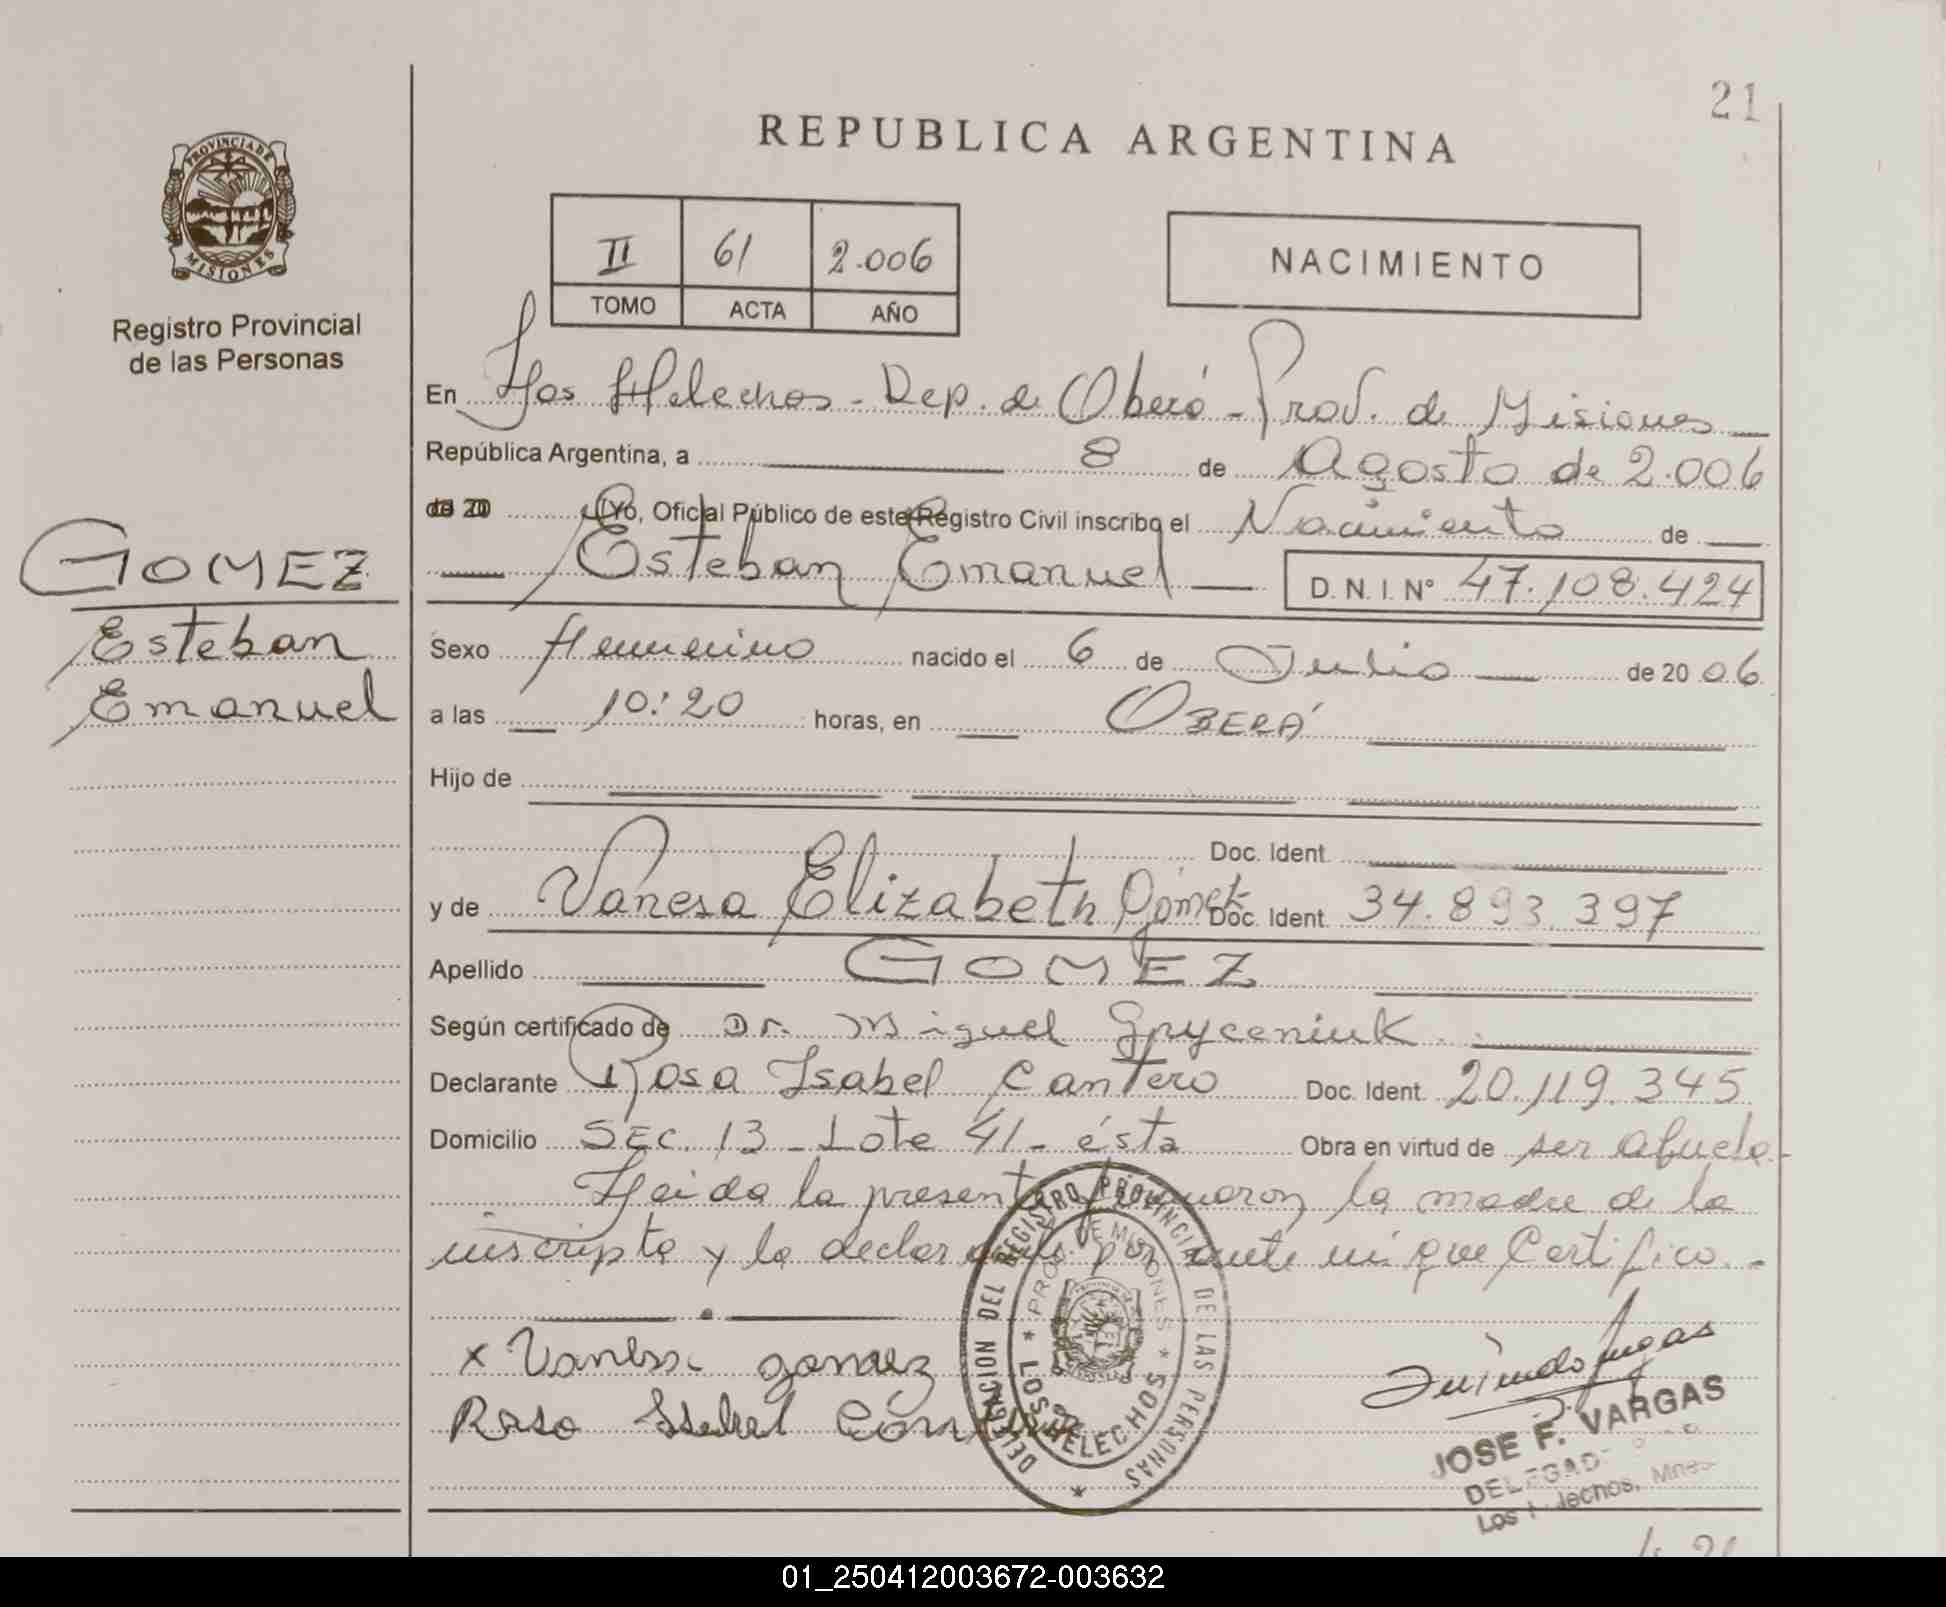 21
REPUBLICA ARGENTINA
PROVINCIA DE
MISIONES
Registro Provincial
de las Personas
II 61 2.006
TOMO ACTA AÑO
NACIMIENTO
En Los Helechos - Dep. de Oberá - Prov. de Misiones
República Argentina, a 8 de Agosto de 2.006
de 20 Yo, Oficial Público de este Registro Civil inscribo el Nacimiento de
Esteban Emanuel D. N. I. Nº 47.108.424
GOMEZ
Esteban
Emanuel
Sexo Femenino nacido el 6 de Julio de 20 06
a las 10:20 horas, en OBERÁ
Hijo de
Doc. Ident.
y de Vanesa Elizabeth Gómez Doc. Ident. 34.893.397
Apellido GOMEZ
Según certificado de Dr. Miguel Gryceniuk
Declarante Rosa Isabel Cantero Doc. Ident. 20.119.345
Domicilio SEC. 13 - Lote 41 - ésta Obra en virtud de ser abuela.-
Leida la presente firmaron, la madre de la
inscripta y la declarante por ante mi que Certifico.-
x Vanesa gomez
Rosa Isabel
DELEGACION DEL REGISTRO PROVINCIAL DE LAS PERSONAS
PROV. DE MISIONES
LOS HELECHOS
JOSE F. VARGAS
Los Helechos, Mnes
01_250412003672-003632